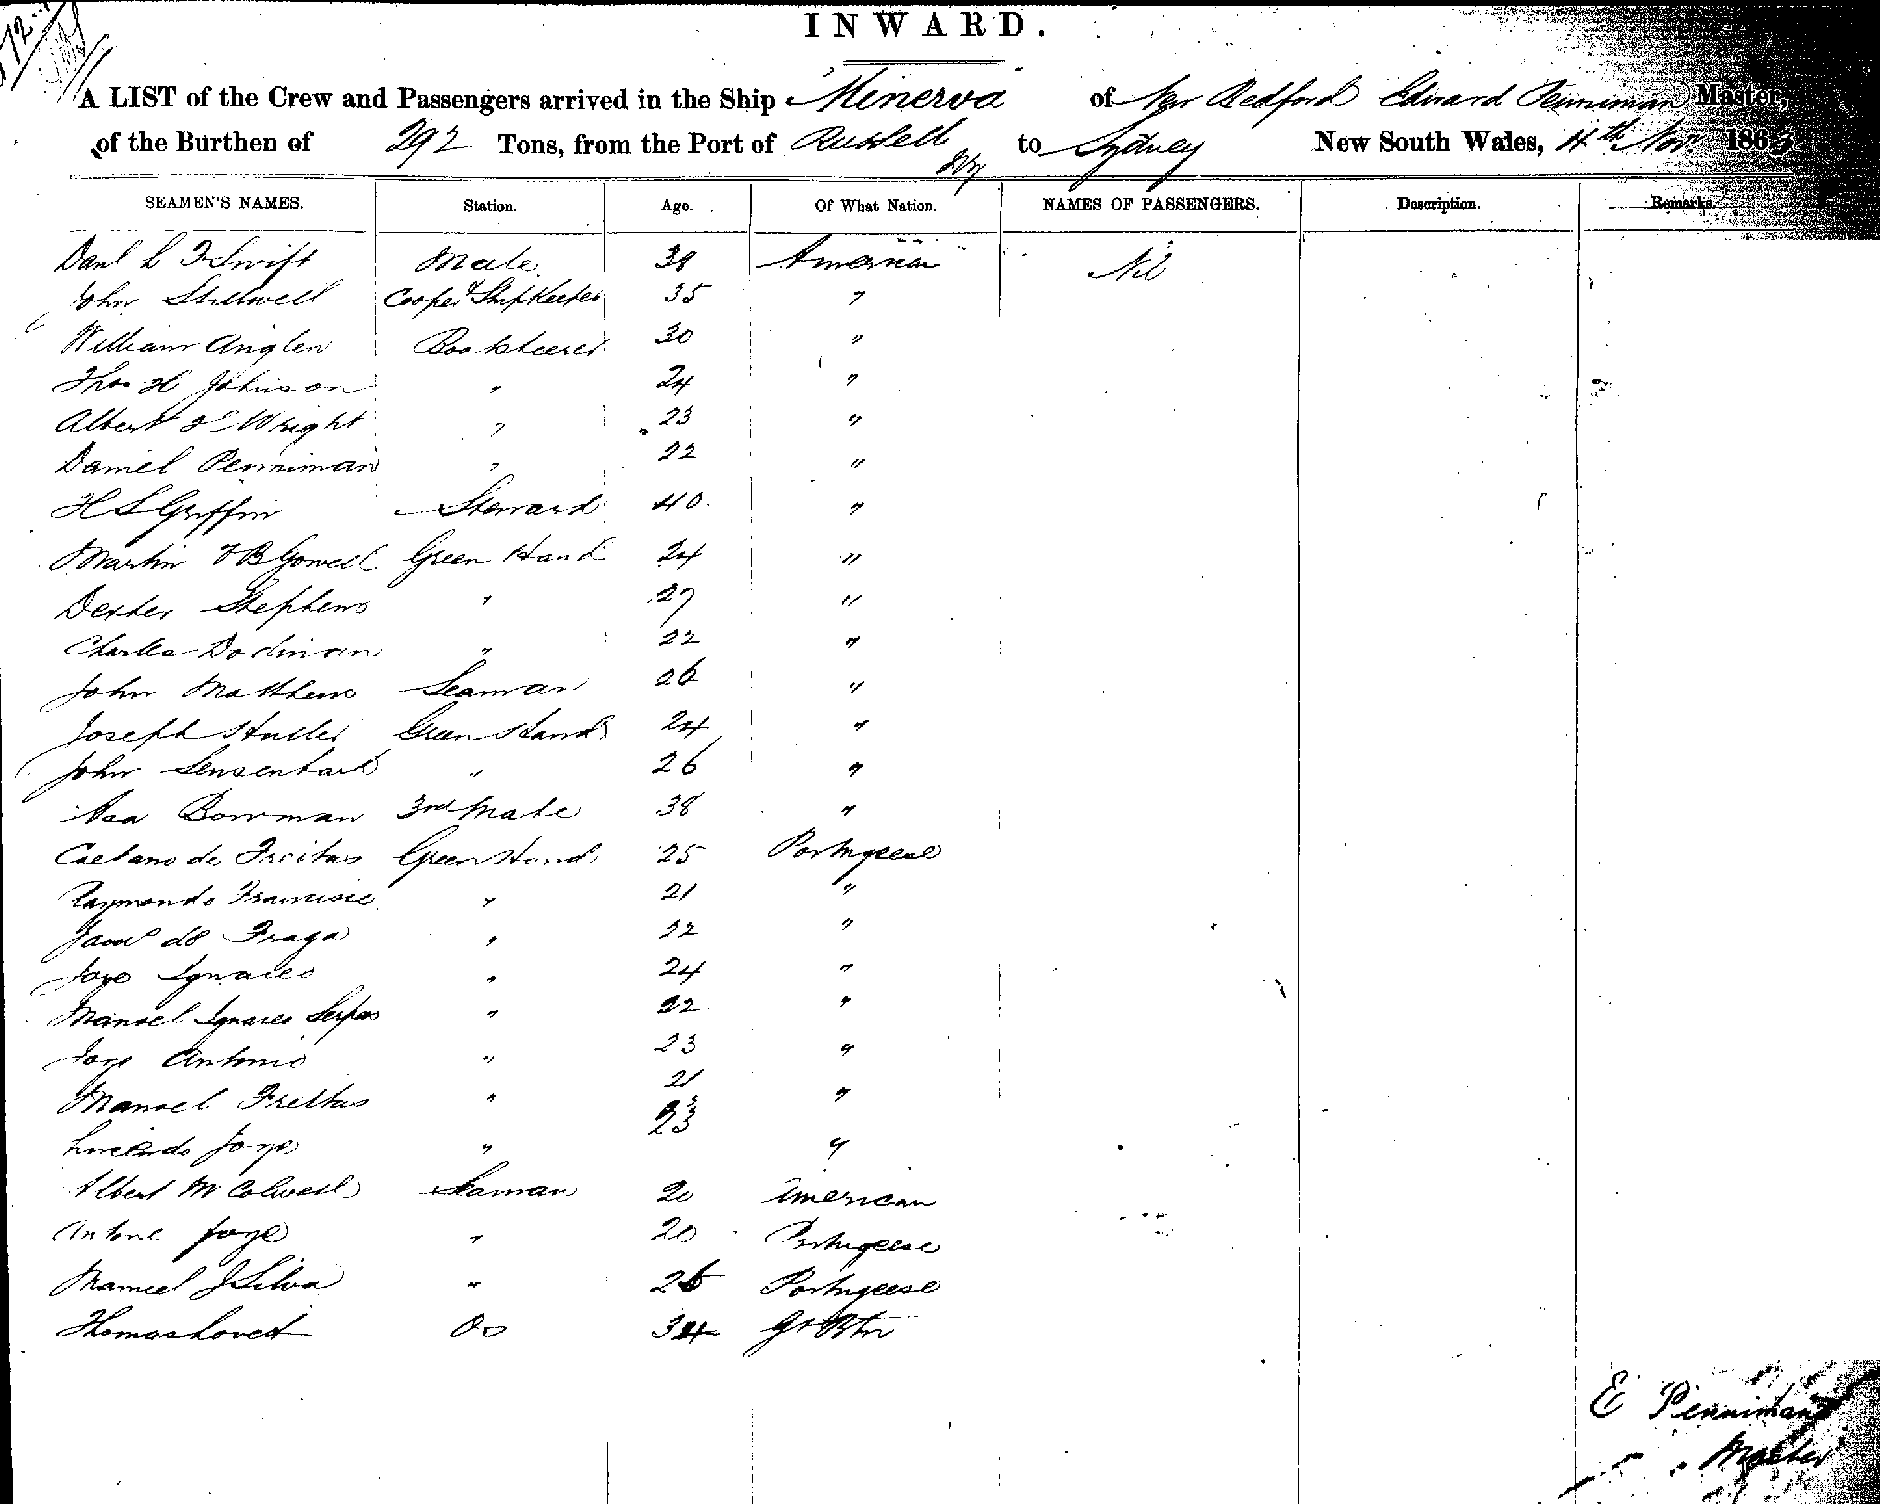 INWARD.
A LIST of the Crew and Passengers arrived in the Ship Minerva of New Bedford Edward Penniman Master,
of the Burthen of 292 Tons, from the Port of Russell to Sydney New South Wales, 4th Nov. 186
SEAMEN'S NAMES. Station. Age. Of What Nation. NAMES OF PASSENGERS. Description. Remarks.
Danl L Swift Mate 38 American Nil
John Stillwell Cooper & Shipkeeper 35 "
William Anglen Boatsteerer 30 "
Thos H Johnson " 24 "
Albert F Wright " 23 "
Daniel Penniman " 22 "
H S Griffin Steward 40 "
Martin V B Gowell Green Hand 24 "
Dexter Stephens " 27 "
Charles Dodiman " 22 "
John Matthews Seaman 26 "
Joseph Green Hand 24 "
John " 26 "
Asa Bowman 3rd Mate 38 "
Caetano de Freitas Green Hand 25 Portugeese
Raymondo Francisco " 21 "
de Fraga " 22 "
Joze Ignacio " 24 "
Manoel Ignacio Serpas " 22 "
Joze Antonio " 23 "
Manoel Freitas " 21 "
Joze " 23 "
Albert M Colwell Seaman 20 American
Antone Joze " 20 Portugeese
Manuel J Silva " 26 Portugeese
Thomas Lovett Do 34 Gt Btn
E Penniman
Master